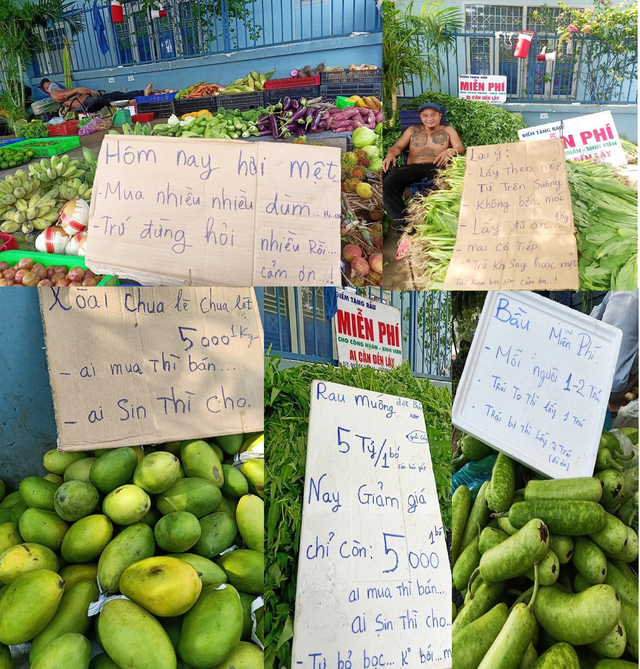 Hôm nay hơi mệt.
- Mua nhiều nhiều dùm...
- Trừ đừng hỏi nhiều Rồi...
cảm ơn...!
MIỄN PHÍ
AI CẦN ĐẾN LẤY
ĐIỂM TẶNG RAU
ỄN PHÍ
NHÂN - SINH VIÊN
ĐẾN LẤY
Lưu ý:
Lấy Theo nếp
Từ Trên Xuống
Không bới móc
1 Kg
- Lấy đủ ăn...
mai có Tiếp
Xoài chua lè chua lét
5000 1Kg
- ai mua Thì bán...
- ai Sin Thì cho...
ĐIỂM TẶNG RAU
MIỄN PHÍ
CHO CÔNG NHÂN - SINH VIÊN
AI CẦN ĐẾN LẤY
Rau muống
5 Tỷ/1 bó
Nay Giảm giá
chỉ còn: 5000 1 bó
ai mua thì bán...
ai Sin Thì cho...
- Tự bỏ bọc... K° bới...m
Bầu Miễn Phí
- Mỗi người 1-2 Trái
- Trái To Thì lấy 1 Trái
- Trái bự Thì lấy 2 Trái